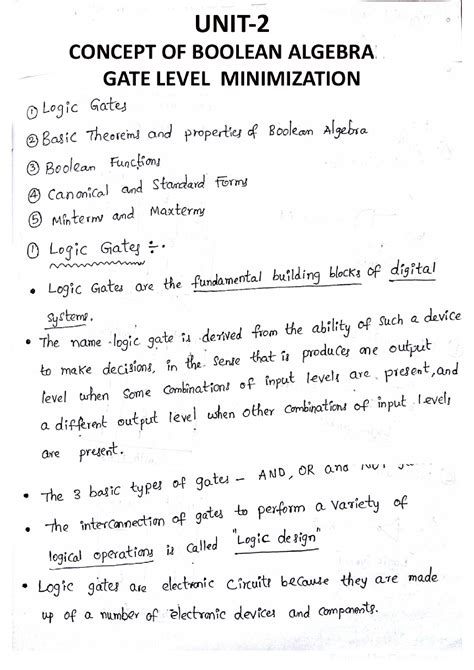 UNIT-2
CONCEPT OF BOOLEAN ALGEBRA
GATE LEVEL MINIMIZATION
① Logic Gates
② Basic Theorems and properties of Boolean Algebra
③ Boolean Functions
④ Canonical and Standard Forms
⑤ Minterms and Maxterms
① Logic Gates :-
• Logic Gates are the fundamental building blocks of digital
systems.
• The name logic gate is derived from the ability of such a device
to make decisions, in the sense that is produces one output
level when some combinations of input levels are present, and
a different output level when other combinations of input levels
are present.
• The 3 basic types of gates - AND, OR and NOT
• The interconnection of gates to perform a variety of
logical operations is called "Logic design"
• Logic gates are electronic circuits because they are made
up of a number of electronic devices and components.